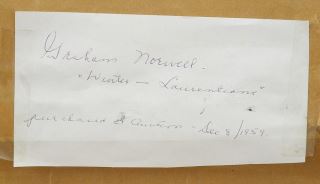 Graham Norwell.
"Winter - Laurentians"
purchased at Auction - Dec 8/1959.